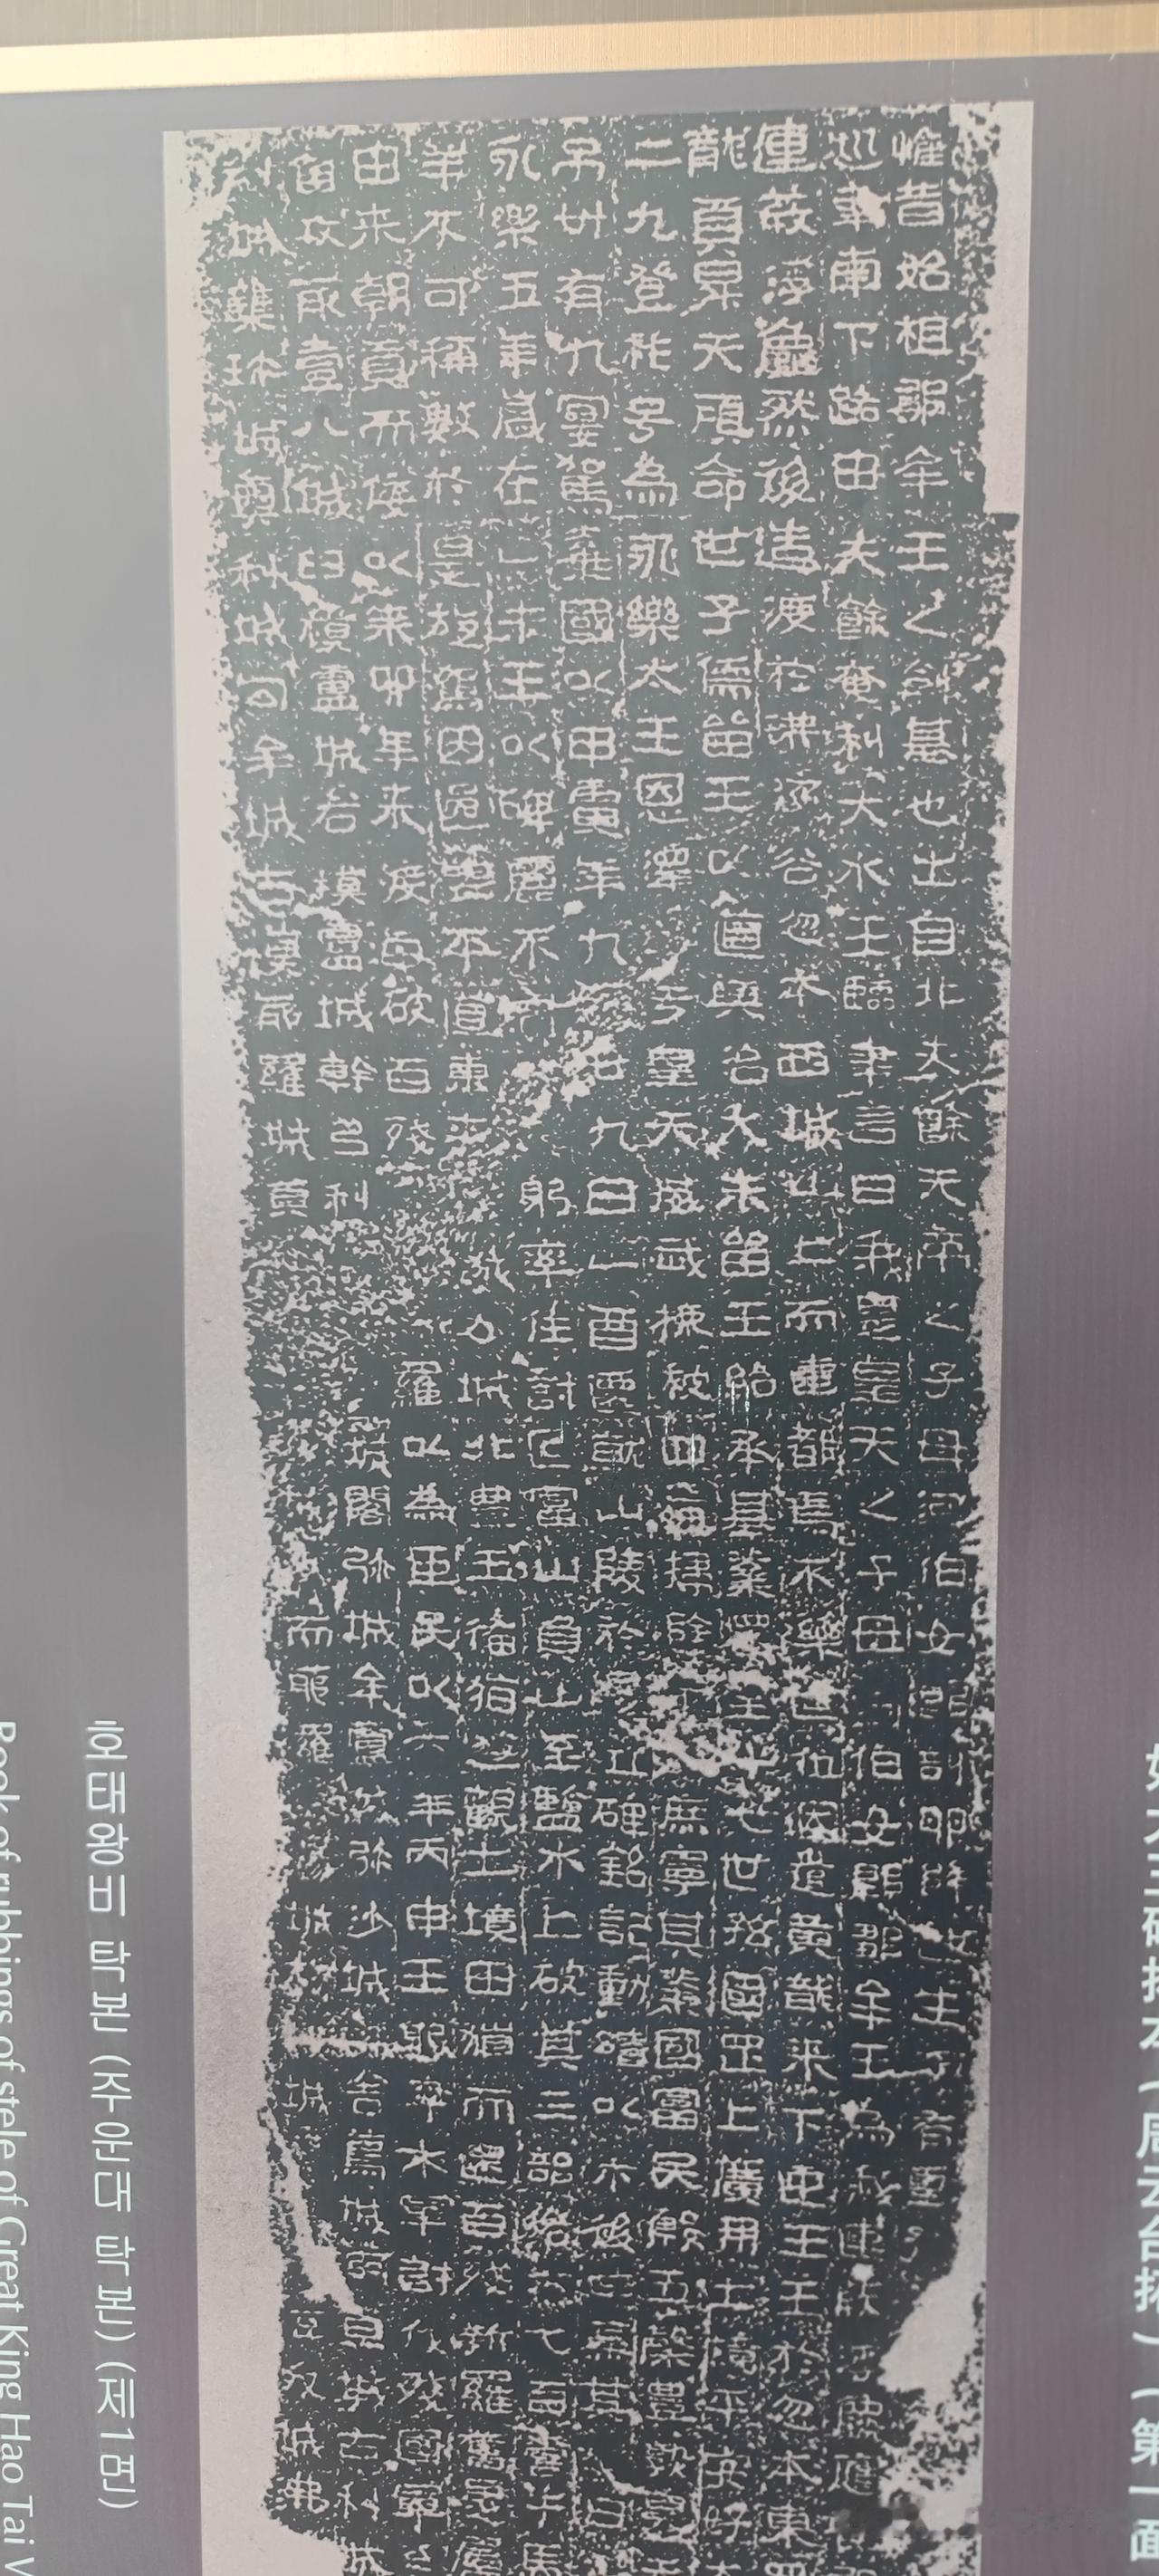 好太王碑拓本(周云台拓)(第一面
惟昔始祖鄒牟王之創基也出自北夫餘天帝之子母河伯女郎剖卵降世生子有聖
巡車南下路由夫餘奄利大水王臨聿言曰我是皇天之子母河伯女郎鄒牟王為我連葭浮龜應
連葭浮龜然後造渡於沸流谷忽本西城山上而建都焉不樂世位因遣黃龍來下迎王王於忽本東罡
龍頁昇天顧命世子儒留王以道興治大朱留王紹承基業至十七世孫國罡上廣開土境平安好太
二九登祚号為永樂太王恩澤于皇天威武振被四海掃除庶寧其業國富民殷五穀豊熟昊天
弔卅有九寔駕棄國以甲寅年九月廿九日乙酉遷就山陵於是立碑銘記勳績以示後世焉其曰
永樂五年歲在乙未王以碑麗不躬率往討叵富山負山至鹽水上破其三部洛六七百營牛馬
羊不可稱數於是旋駕因過襄平道東來城力城北豊王備猶遊觀土境田獵而還百殘新羅舊是屬
由來朝貢而倭以辛卯年來渡海破百殘羅以為臣民以六年丙申王躬率水軍討伐殘國軍
首攻取壹八城臼模盧城各模盧城幹弖利城閣弥城牟盧城弥沙城舍蔦城阿旦城古利城
利城雜珍城奧利城勾牟城古模耶羅城頁城而耶羅城城豆奴城沸
호태왕비 탁본 (주운대 탁본) (제1면)
Book of rubbings of stele of Great King Hao Tai